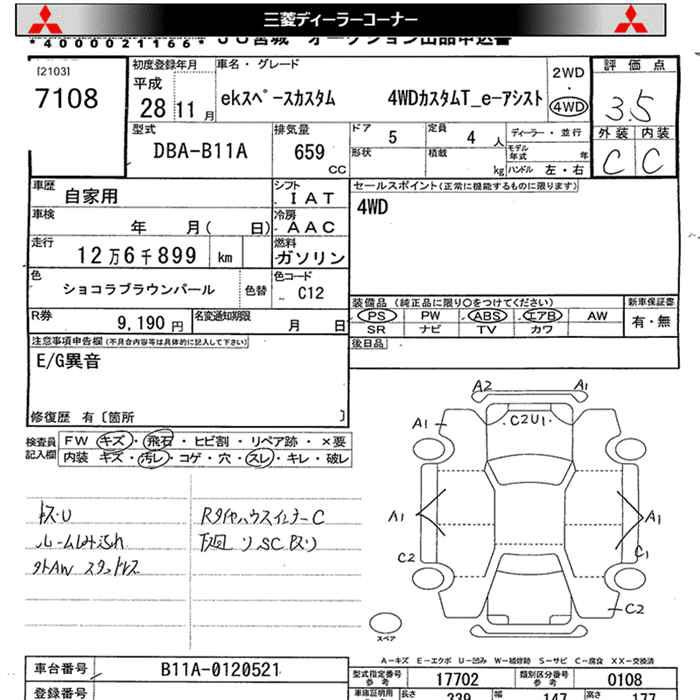 三菱ディーラーコーナー
*4000021166* JU宮城 オークション出品申込書
[2103]
7108
初度登録年月
平成
28 11 月
車名・グレード
ekスペースカスタム 4WDカスタムT_e-アシスト
2WD
・
4WD
評価点
3.5
外装 内装
C C
型式
DBA-B11A
排気量
659 CC
ドア 5
定員 4 人
形状
積載 kg
ディーラー・並行
モデル年式 年
ハンドル 左・右
車歴 自家用
シフト IAT
車検 年 月( 日)
冷房 AAC
走行 12万6千899 km
燃料 ガソリン
色 ショコラブラウンパール
色替
色コード C12
R券 9,190円
名変通知期限 月 日
セールスポイント(正常に機能するものに限ります)
4WD
装備品(純正品に限り○をつけてください)
PS PW ABS エアB AW
SR ナビ TV カワ
新車保証書
有・無
後日品
注意事項申告欄(不具合内容等は具体的に記入して下さい)
E/G異音
修復歴 有〔箇所 〕
検査員記入欄
FW キズ・飛石・ヒビ割・リペア跡・×要
内装 キズ・汚レ・コゲ・穴・スレ・キレ・破レ
キズ・U
ルームしみ汚れ
外AW スタッドレス
RタイヤハウスインナーC
下廻り
A2 A1
A1
C2U1
A1 A1
C2 C1
C2
スペア
A-キズ E-エクボ U-凹み W-補修跡 S-サビ C-腐食 XX-交換済
車台番号 B11A-0120521
登録番号
型式指定番号 参考 17702
類別区分番号 参考 0108
車庫証明用 参考 長さ 339 幅 147 高さ 177